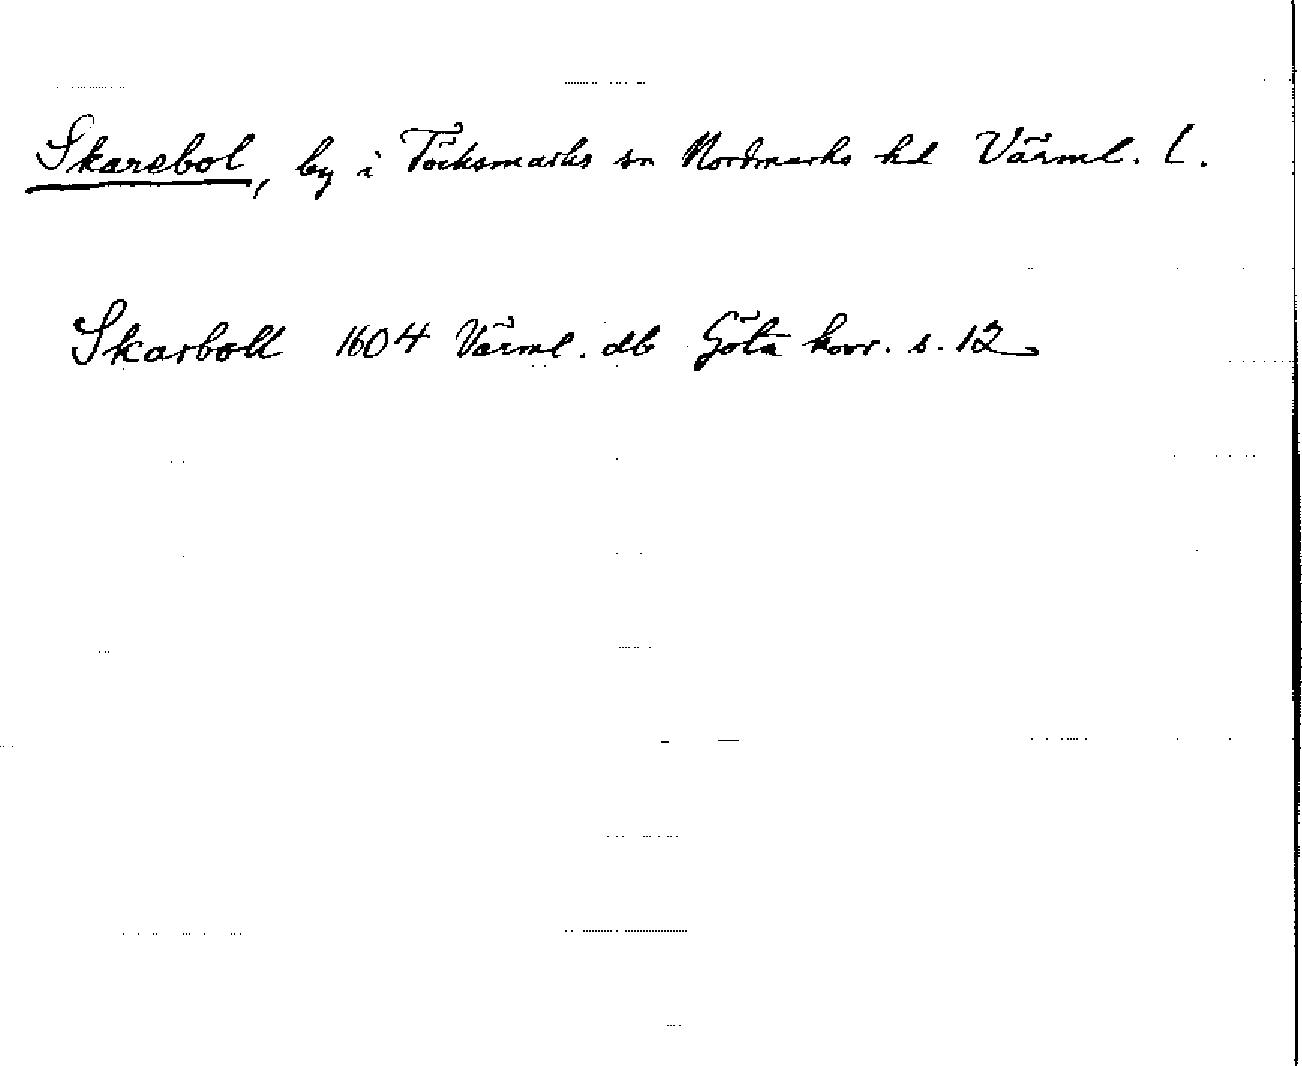 Skarebol, by i Töcksmarks sn Nordmarks hd Värml. l.
Skarboll 1604 Värml. db Göta hovr. s. 12